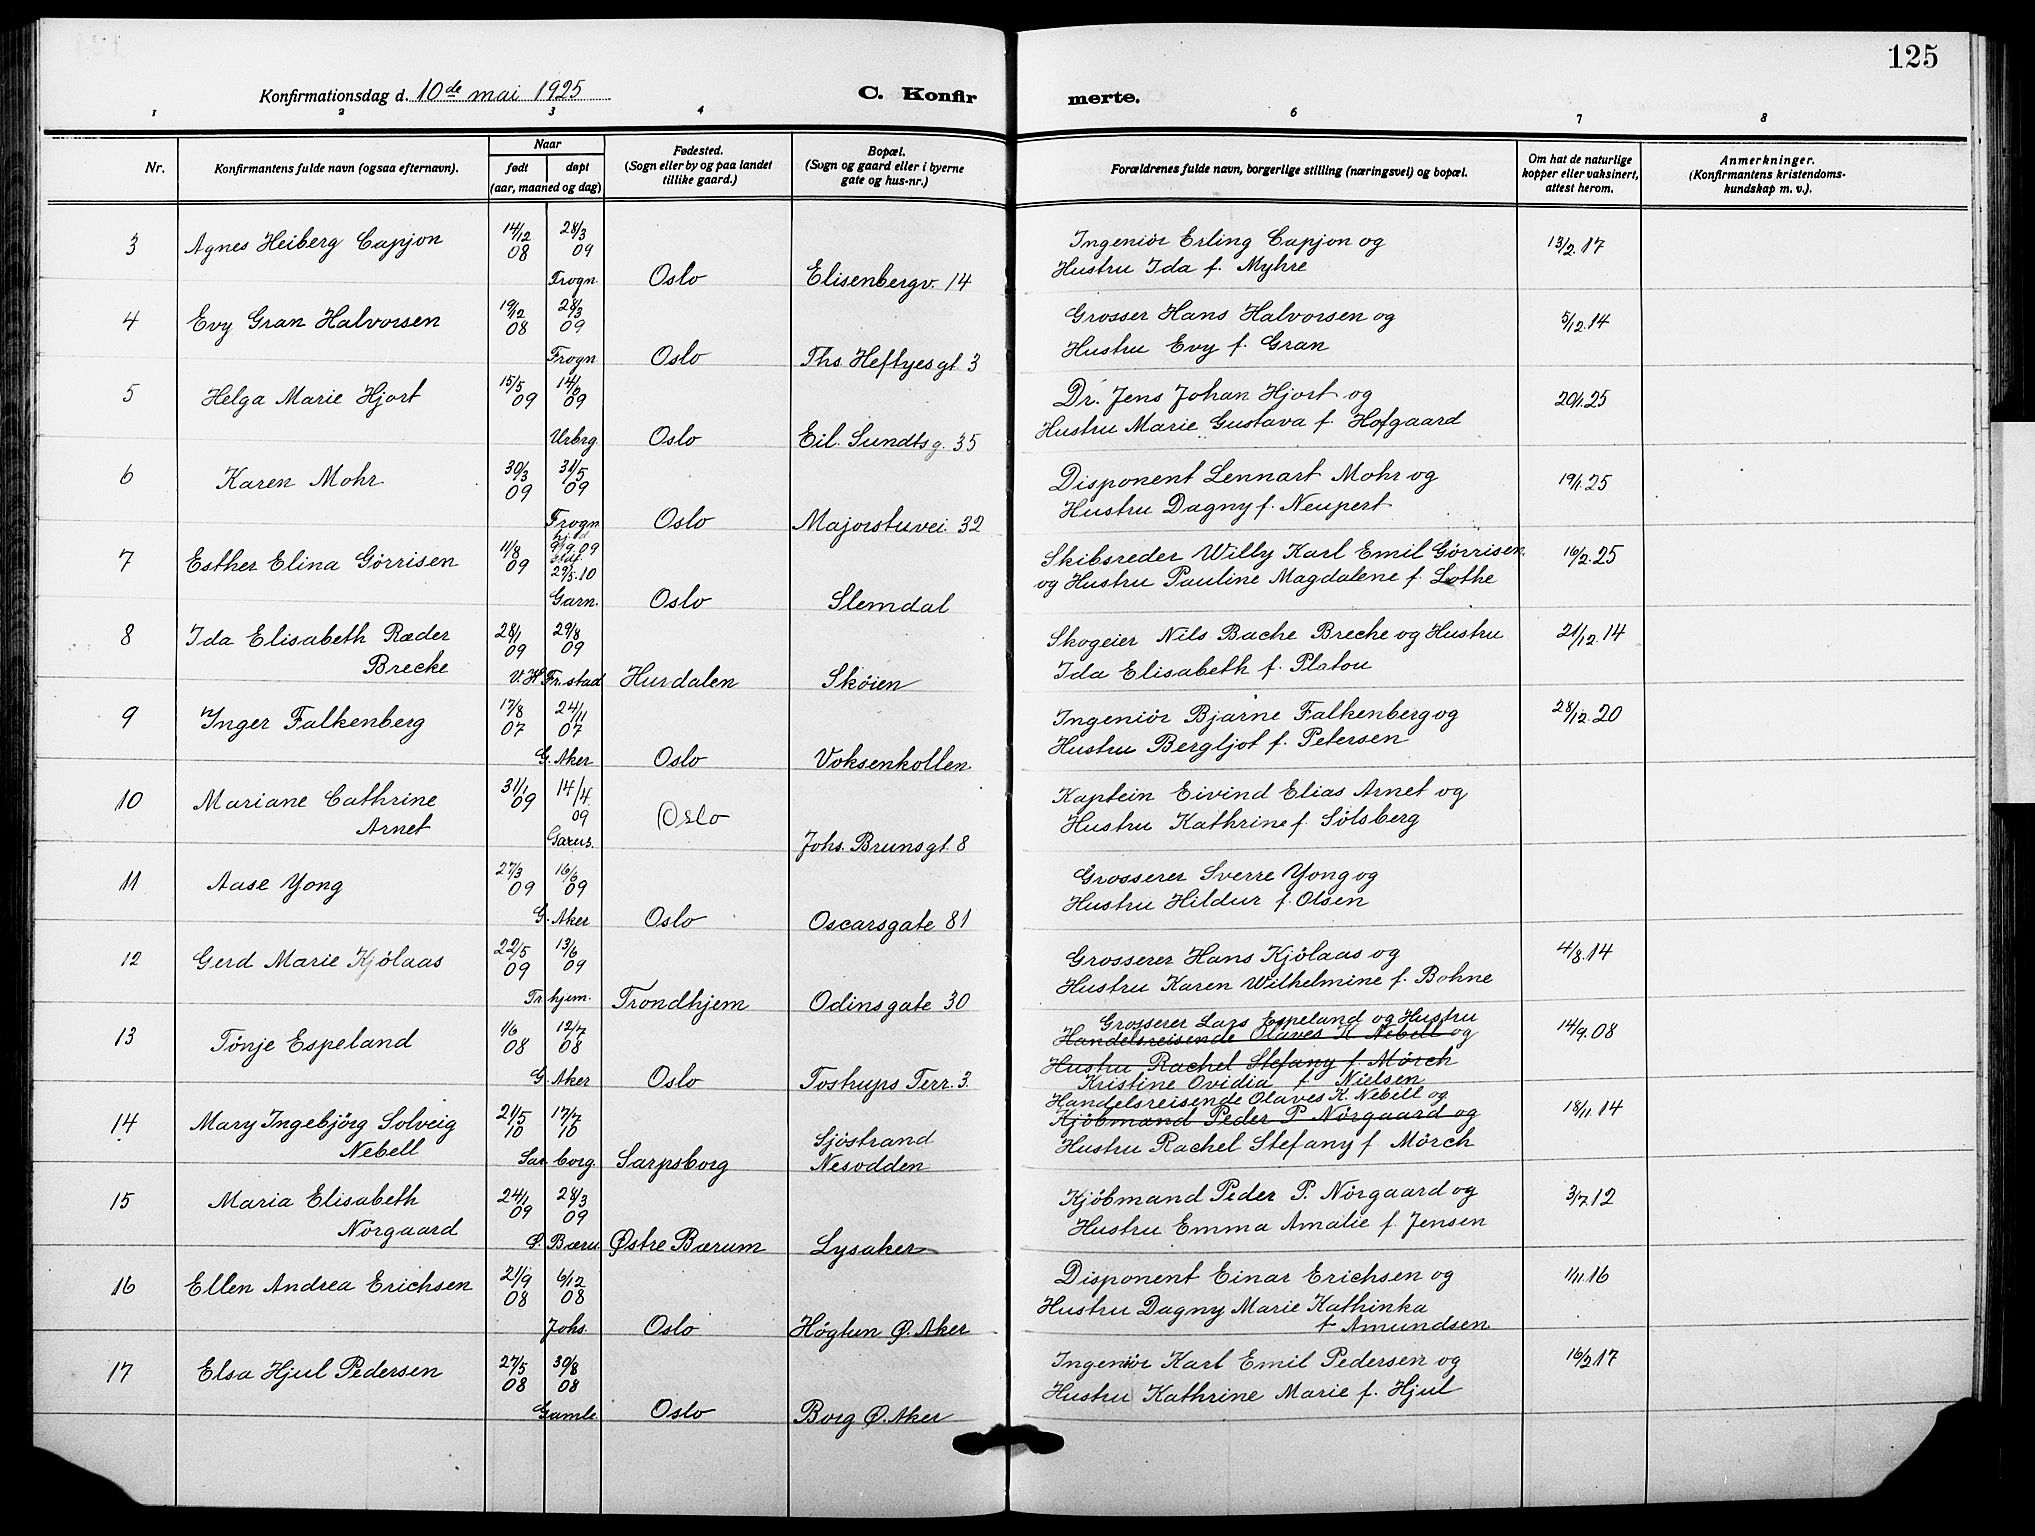 125
Konfirmationsdag d. 10de mai 1925 C. Konfir merte.
1 2 3 4 5 6 7 8
Nr. Konfirmantens fulde navn (ogsaa efternavn). Naar født døpt (aar, maaned og dag) Fødested. (Sogn eller by og paa landet tillike gaard.) Bopæl. (Sogn og gaard eller i byerne gate og hus-nr.) Forældrenes fulde navn, borgerlige stilling (næringsvei) og bopæl. Om hat de naturlige kopper eller vaksinert, attest herom. Anmerkninger. (Konfirmantens kristendomskundskap m. v.)
3 Agnes Heiberg Capjon 14/12 08 28/3 09 Ingeniør Erling Capjon og 13/2.17
Frogn Oslo Elisenbergv. 14 Hustru Ida f. Myhre
4 Evy Gran Halvorsen 19/12 08 28/3 09 Grosser Hans Halvorsen og 5/12.14
Frogn Oslo Ths. Heftyes gt 3 Hustru Evy f. Gran
5 Helga Marie Hjort 15/5 09 09 Dr. Jens Johan Hjort og 20/1.25
Urbrg Oslo Eil. Sundts g. 35 Hustru Marie Gustava f. Hofgaard
6 Karen Mohr 30/3 09 31/5 09 Disponent Lennart Mohr og 19/1.25
Frogn Oslo Majorstuvei. 32 Hustru Dagny f. Neupert
7 Esther Elina Görrisen 11/8 09 hj.d 9/9.09 st.df. 29/5.10 Skibsreder Willy Karl Emil Görrisen 16/2.25
Garn. Oslo Slemdal og Hustru Pauline Magdalene f. Lothe
8 Ida Elisabeth Ræder 28/1 09 29/8 09 Skogeier Nils Bache Brecke og Hustru 21/12.14
Brecke V. Fr.stad Hurdalen Skøien Ida Elisabeth f. Platou
9 Inger Falkenberg 17/8 07 24/11 07 Ingeniør Bjarne Falkenberg og 28/12.20
G. Aker Oslo Voksenkollen Hustru Bergljot f. Petersen
10 Mariane Cathrine 31/1 09 14/4. 09 Oslo Kaptein Eivind Elias Arnet og
Arnet Garus. Johs. Bruns gt. 8 Hustru Kathrine f. Sölsberg
11 Aase Yong 27/3 09 16/6 09 Grosserer Sverre Yong og
G. Aker Oslo Oscarsgate 81 Hustru Hildur f. Olsen
12 Gerd Marie Kjölaas 22/5 09 13/6 09 Grosserer Hans Kjölaas og 4/8.14
Tr.hjem. Trondhjem Odinsgate 30 Hustru Karen Wilhelmine f. Bohne
Grosserer Lars Espeland og Hustru
13 Tönje Espeland 1/6 08 12/7 08 Handelsreisende Olaves K. Nebell og 14/9.08
Hustru Rachel Stefany f. Mörch
G. Aker Oslo Tostrups Terr. 3. Kristine Ovidia f. Nielsen
Handelsreisende Olaves K. Nebell og
14 Mary Ingebjörg Solveig 21/5 10 17/7 10 Kjöbmand Peder P Nörgaard og 18/11.14
Nebell Sar.borg. Sarpsborg Sjöstrand Nesodden Hustru Rachel Stefany f. Mörch
15 Maria Elisabeth 24/1 09 28/3 09 Kjöbmand Peder P. Nörgaard og 3/7.12
Nörgaard Ø. Bæru Østre Bærum Lysaker Hustru Emma Amalie f. Jensen
16 Ellen Andrea Erichsen 21/9 08 6/12 08 Disponent Einar Erichsen og 1/11.16
Johs. Oslo Högtun Ø. Aker Hustru Dagny Marie Kathinka
f Amundsen
17 Elsa Hjul Pedersen 27/5 08 30/8 08 Ingeniør Karl Emil Pedersen og 16/2.17
Gamle. Oslo Borg Ø. Aker Hustru Kathrine Marie f. Hjul